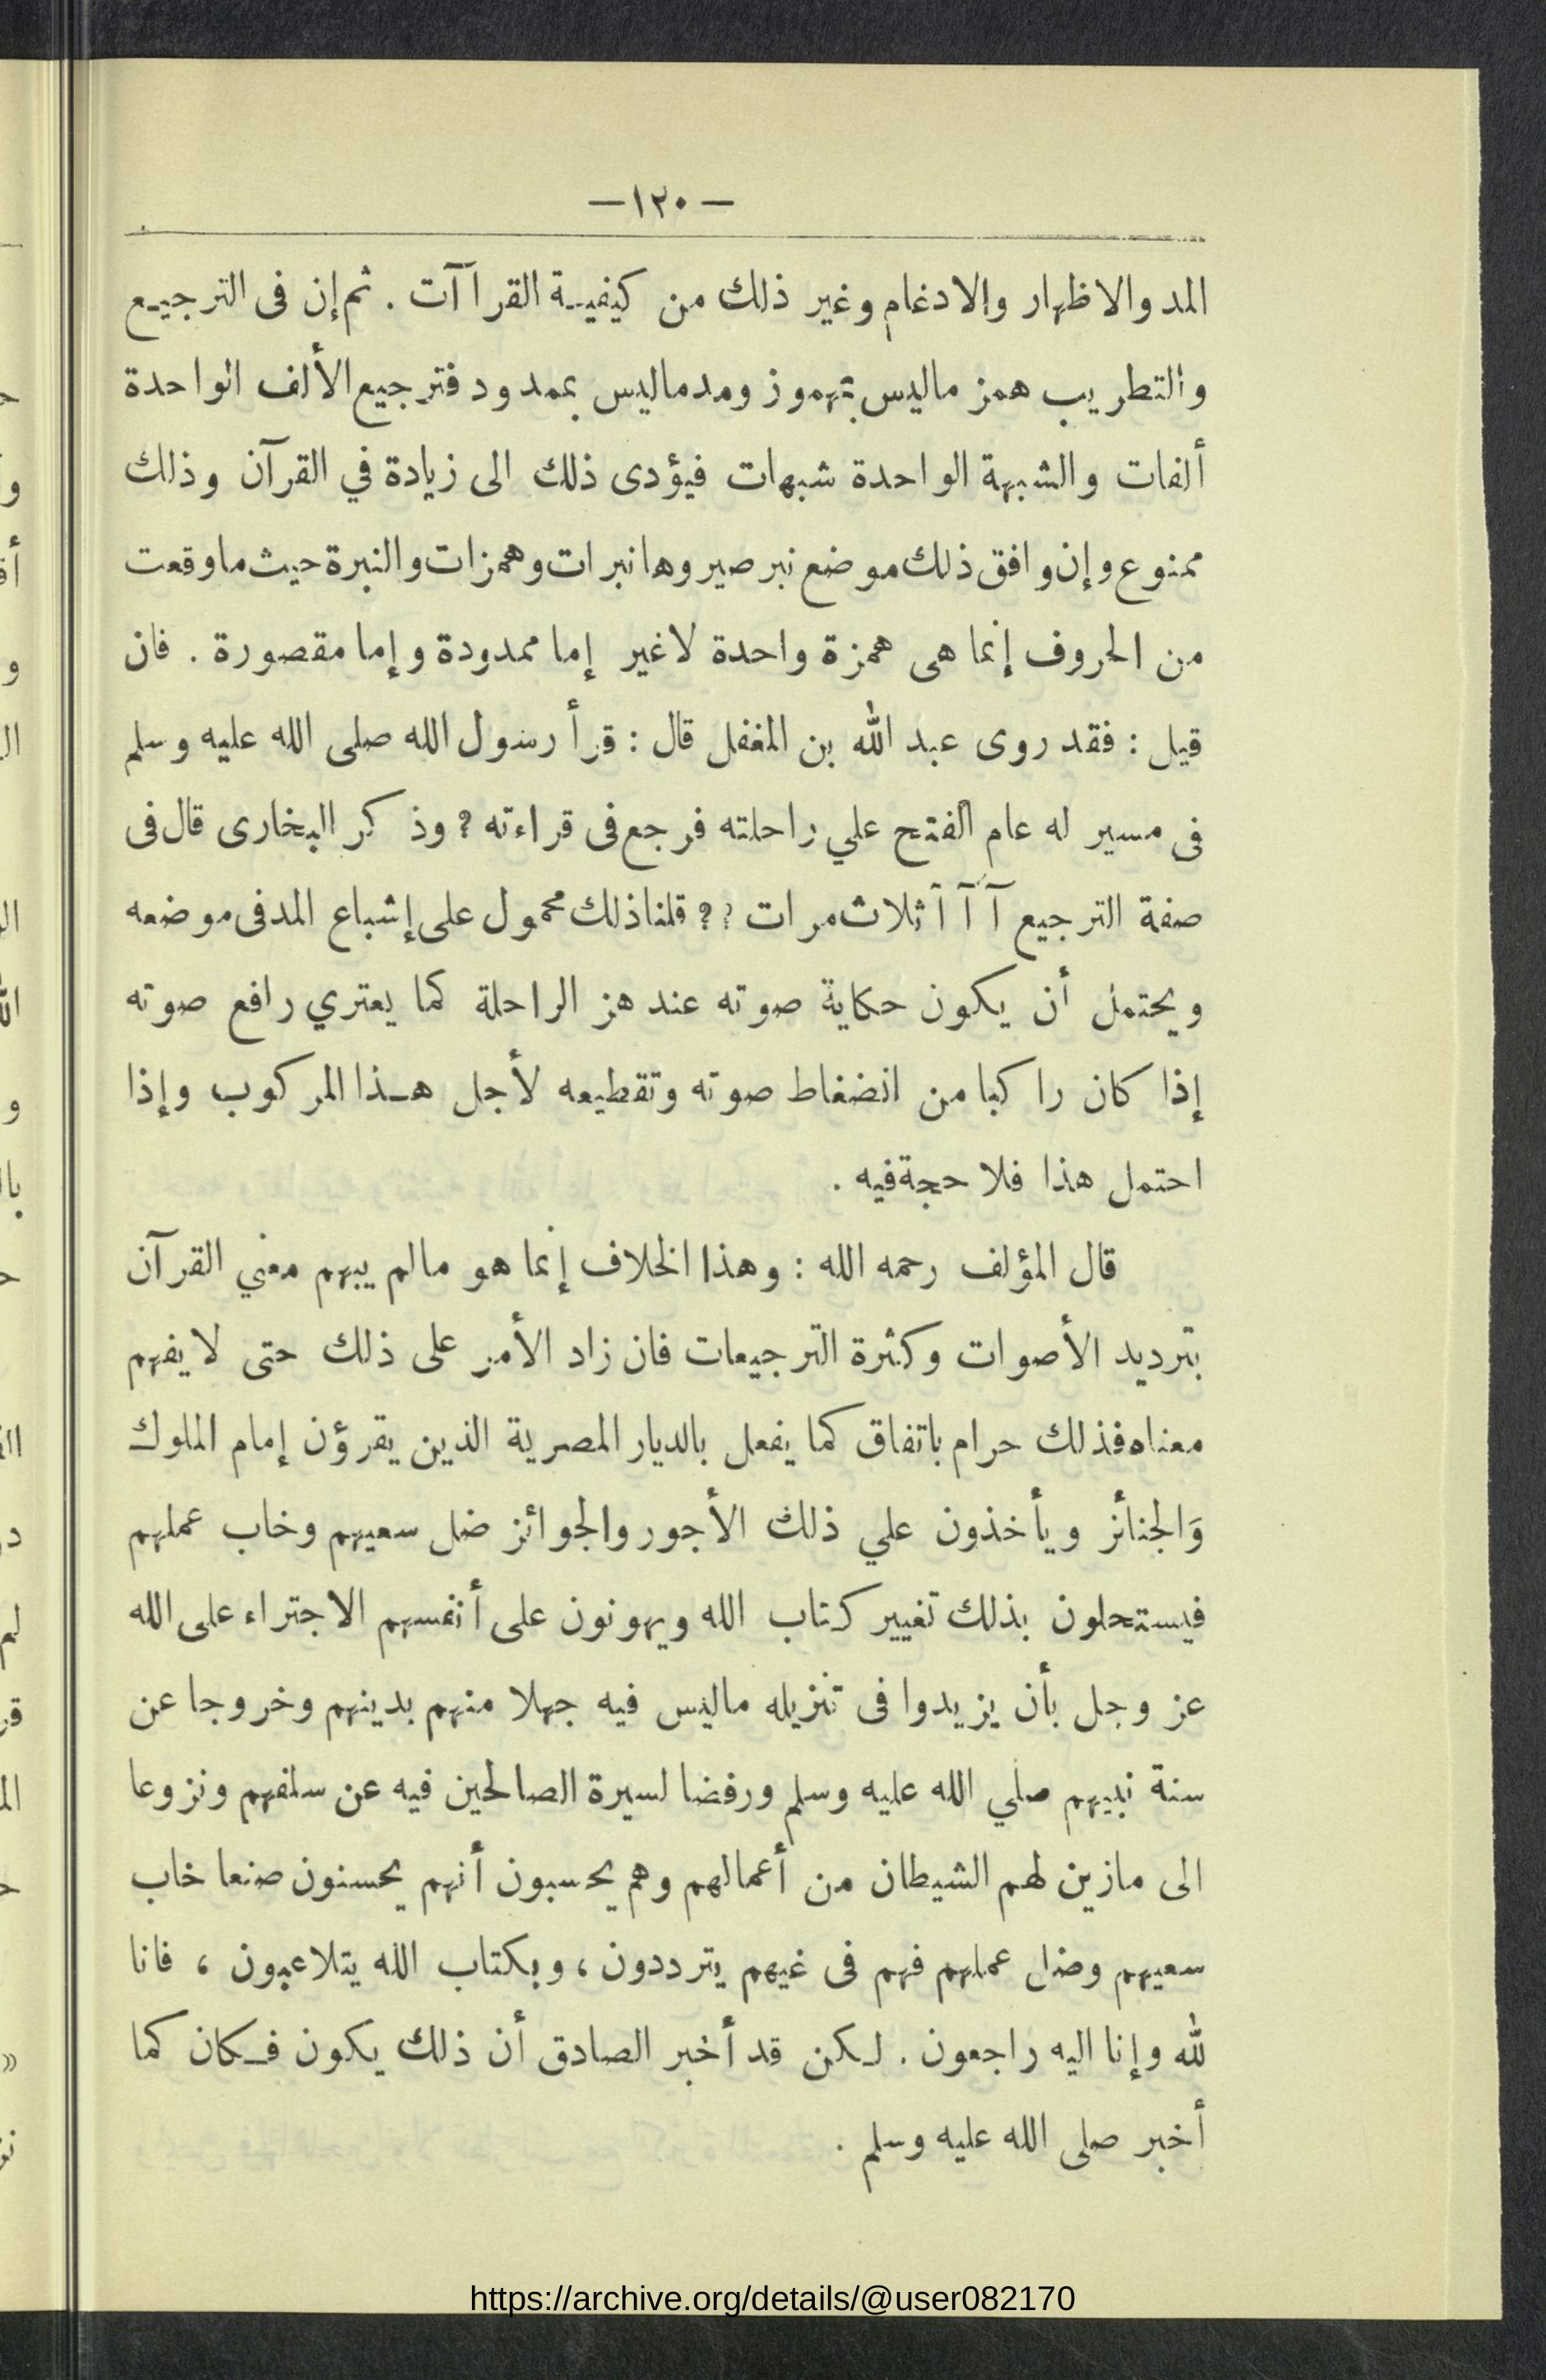 — ١٢٠ —
المد والاظهار والادغام وغير ذلك من كيفيـة القراآت . ثم إن فى الترجيـع
والتطريب همز ماليس بمهموز ومدماليس بممدود فترجيع الألف الواحدة
ألفات والشبهة الواحدة شبهات فيؤدى ذلك الى زيادة في القرآن وذلك
ممنوع وإن وافق ذلك موضع نبر صير وها نبرات وهمزات والنبرة حيث ما وقعت
من الحروف إنما هى همزة واحدة لاغير إما ممدودة وإما مقصورة . فان
قيل : فقد روى عبد الله بن المغفل قال : قرأ رسول الله صلى الله عليه وسلم
فى مسير له عام الفتح علي راحلته فرجع فى قراءته ؟ وذكر البخارى قال فى
صفة الترجيع آ آ آ ثلاث مرات ؟ ؟ قلنا ذلك محمول على إشباع المد فى موضعه
ويحتمل أن يكون حكاية صوته عند هز الراحلة كما يعتري رافع صوته
إذا كان راكبا من انضغاط صوته وتقطيعه لأجل هـذا المركوب وإذا
احتمل هذا فلا حجة فيه .
قال المؤلف رحمه الله : وهذا الخلاف إنما هو مالم يبهم معني القرآن
بترديد الأصوات وكثرة الترجيعات فان زاد الأمر على ذلك حتى لا يفهم
معناه فذلك حرام باتفاق كما يفعل بالديار المصرية الذين يقرؤن إمام الملوك
وَالجنائز ويأخذون علي ذلك الأجور والجوائز ضل سعيهم وخاب عملهم
فيستحلون بذلك تغيير كتاب الله ويهونون على أنفسهم الاجتراء على الله
عز وجل بأن يزيدوا فى تنزيله ماليس فيه جهلا منهم بدينهم وخروجا عن
سنة نبيهم صلي الله عليه وسلم ورفضا لسيرة الصالحين فيه عن سلفهم ونزوعا
الى مازين لهم الشيطان من أعمالهم وهم يحسبون أنهم يحسنون صنعا خاب
سعيهم وضل عملهم فهم فى غيهم يترددون ، وبكتاب الله يتلاعبون ، فانا
لله وإنا اليه راجعون . لـكن قد أخبر الصادق أن ذلك يكون فـكان كما
أخبر صلى الله عليه وسلم .
https://archive.org/details/@user082170